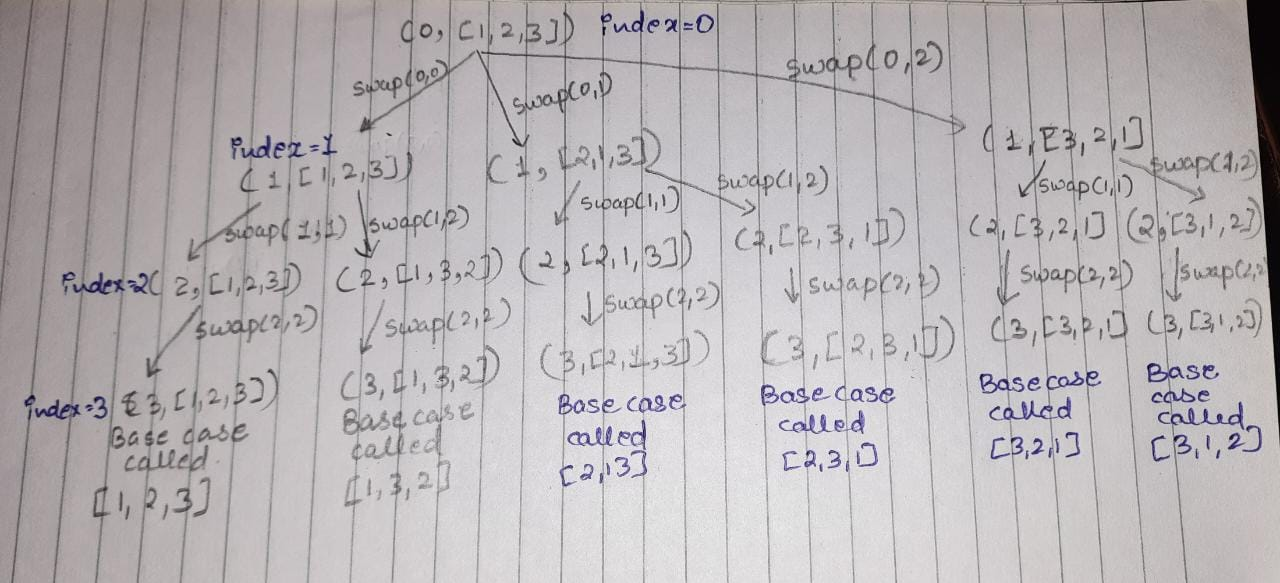 (0, [1,2,3]) index=0
swap(0,0) swap(0,1) swap(0,2)
index=1
(1,[1,2,3]) (1,[2,1,3]) (1,[3,2,1]
swap(1,1) swap(1,2) swap(1,1) swap(1,2) swap(1,1) swap(1,2)
index=2( 2,[1,2,3]) (2,[1,3,2]) (2,[2,1,3]) (2,[2,3,1]) (2,[3,2,1] (2,[3,1,2])
swap(2,2) swap(2,2) swap(2,2) swap(2,2) swap(2,2) swap(2,2
index=3 (3,[1,2,3]) (3,[1,3,2]) (3,[2,1,3]) (3,[2,3,1]) (3,[3,2,1] (3,[3,1,2])
Base case called [1,2,3]
Base case called [1,3,2]
Base case called [2,13]
Base case called [2,3,1]
Base case called [3,2,1]
Base case called [3,1,2]